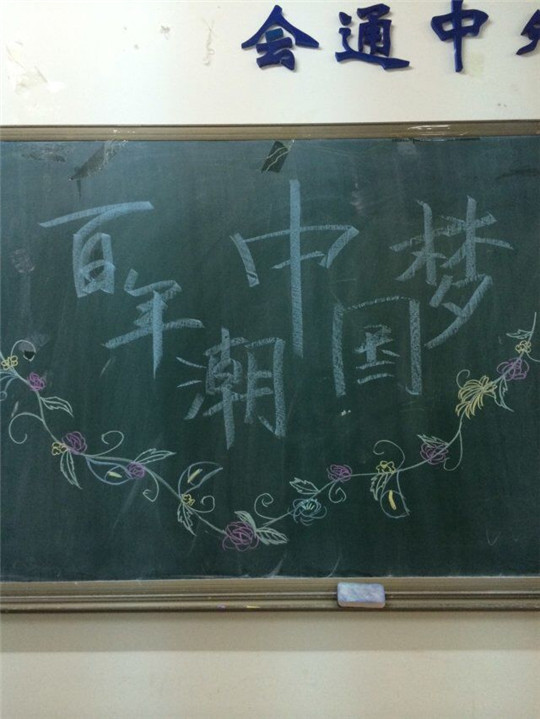 会通中外
百年潮 中国梦